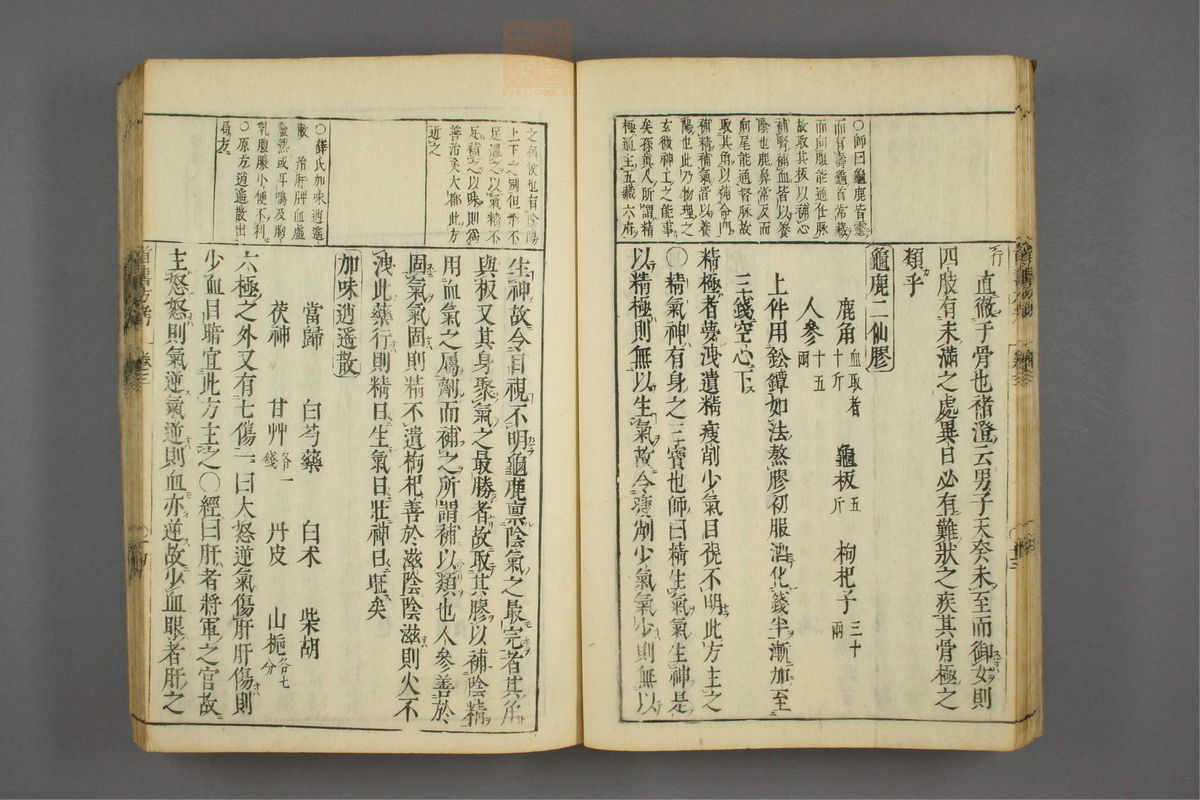 ○師曰龜鹿皆靈
而有壽龜首常藏
而向腹能通任脉
故取其板以補心
補腎補血皆以養
陰也鹿鼻常反而
向尾能通督脉故
取其角以補命門
補精補氣皆以養
陽也此乃物理之
玄微神工之能事
矣孫真人所謂精
極通主五藏六府
直徹于骨也褚澄云男子天癸未至而御女則
四肢有未滿之處異日必有難狀之疾其骨極之
類乎
龜鹿二仙膠
鹿角血取者十斤　龜板五斤　枸杞子三十兩
人參十五兩
上件用鉛罈如法熬膠初服酒化錢半漸加至
三錢空心下
精極者夢洩遺精瘦削少氣目視不明此方主之
○精氣神有身之三寶也師曰精生氣氣生神是
以精極則無以生氣故令瘦削少氣氣少則無以
之病候也有陰陽
上下之別但形不
足溫之以氣精不
足補之以味則為
善治矣大都此方
近之
○薛氏加味逍遙
散　治肝脾血虛
發熱或耳鳴及胸
乳腹脹小便不利
○原方逍遙散出
局方
生神故令目視不明龜鹿禀陰氣之最完者其角
與板又其身聚氣之最勝者故取其膠以補陰精
用血氣之屬劑而補之所謂補以類也人參善於
固氣氣固則精不遺枸杞善於滋陰陰滋則火不
洩此藥行則精日生氣日壯神日旺矣
加味逍遥散
當歸　白芍藥　白术　柴胡
茯神　甘艸各一錢　丹皮　山梔各七分
六極之外又有七傷一曰大怒逆氣傷肝肝傷則
少血目暗宜此方主之○經曰肝者將軍之官故
主怒怒則氣逆氣逆則血亦逆故少血眼者肝之